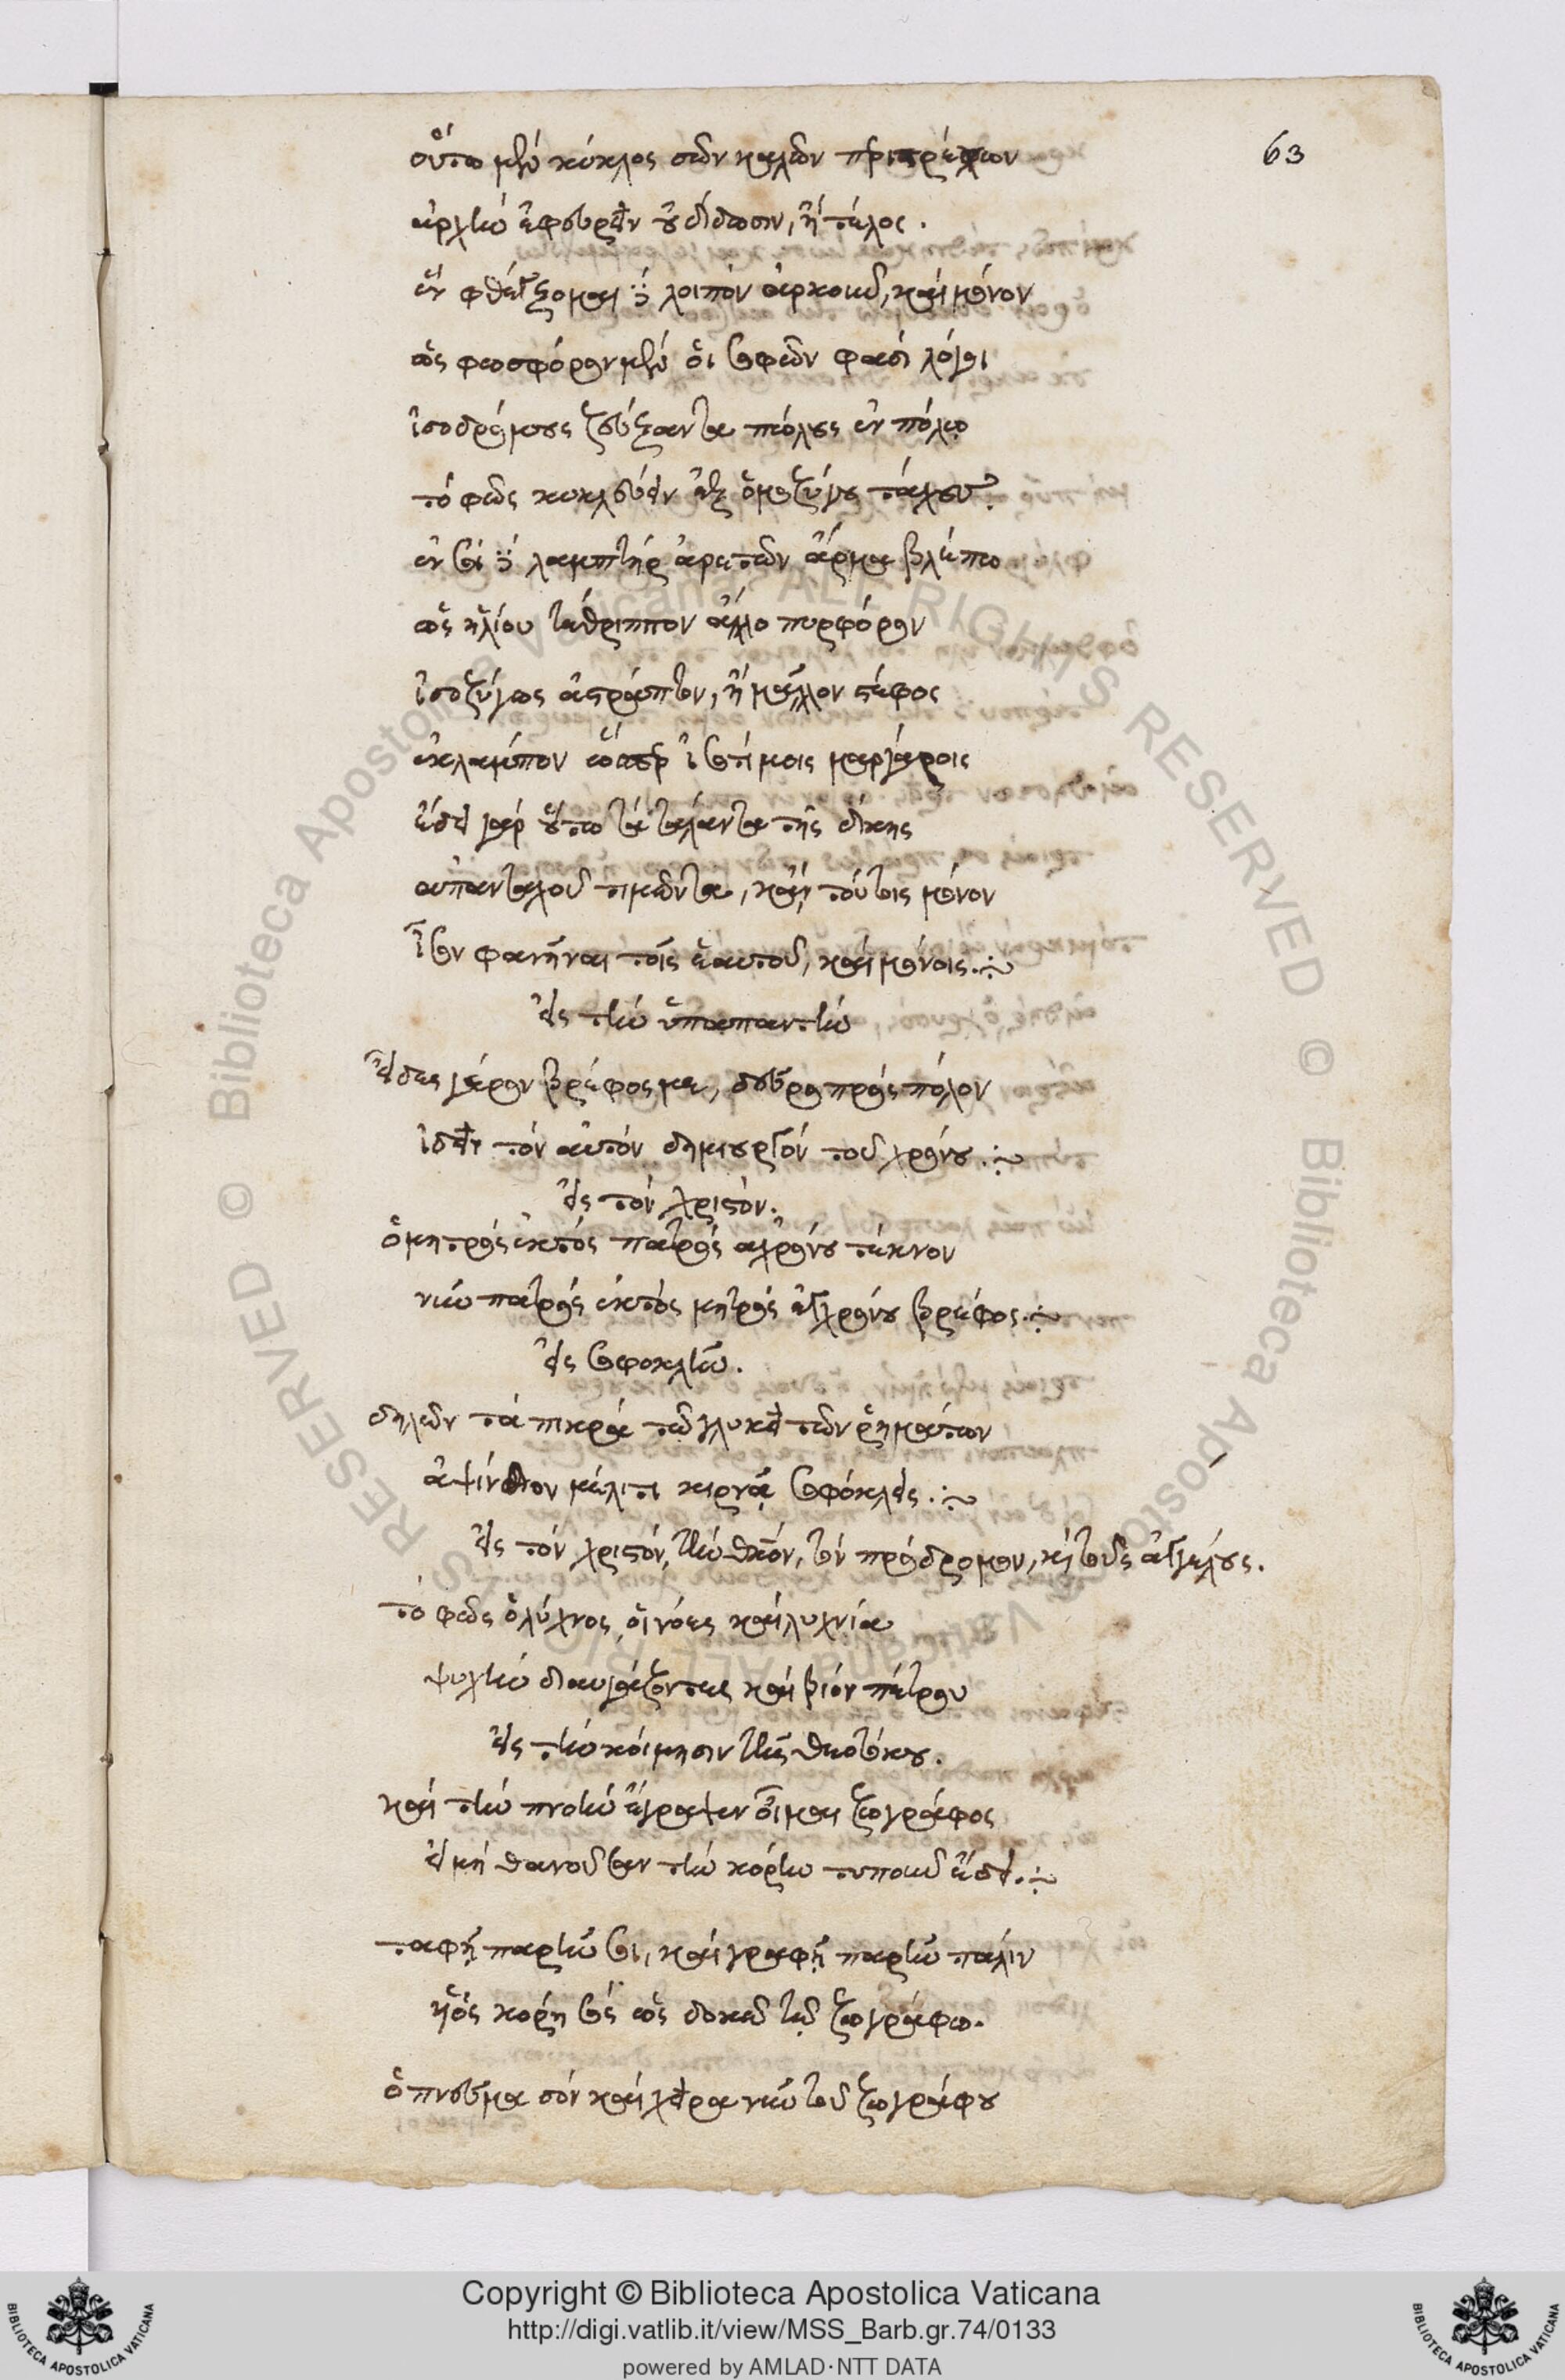 63
οὕτω μὲν κύκλος σῶν καλῶν περιτρέχων
ἀρχὴν ἐφευρεῖν οὐ δίδωσιν, ἢ τέλος.
ἓν φθέγξομαι λοιπὸν ἀρκοῦν, καὶ μόνον
ὡς φωσφόρον μὲν οἱ σοφῶν φασὶ λόγοι
ἰσοδρόμους ζεύξαντα πώλους ἐν πόλῳ
τὸ φῶς κυκλεύειν ἐξ ὁμοζύγου τάχους
ἐν σοὶ λαμπτὴρ ἀρετῶν ἅρμα βλέπω
ὡς ἡλίου τέθριππον ἄλλο πυρφόρον
ἰσοζύγως ἀστράπτον, ἢ μᾶλλον στέφος
ἐκλάμπον ὥσπερ ἰσοτίμοις μαργάροις
ἔδει γὰρ οὕτω τὰ τάλαντα τῆς δίκης
ἁπανταχοῦ τιμῶντα, κἂν τούτοις μόνον
ἶσον φανῆναι τοῖς ἑαυτοῦ, καὶ μόνοις.
εἰς τὴν ὑπαπαντὴν
εἶδες γέρον βρέφος με, δεῦρο πρὸς πόλον
ἰδεῖν τὸν αὐτὸν δημιουργὸν τοῦ χρόνου.
εἰς τὸν χριστόν.
ὁ μητρὸς ἐκτὸς πατρὸς ἀχρόνου τέκνον
νῦν πατρὸς ἐκτὸς μητρὸς ἐγχρόνου βρέφος.
εἰς σοφοκλῆν.
δηλῶν τὰ πικρὰ τῷ γλυκεῖ τῶν ῥημάτων
ἀψίνθιον μέλιτι κιρνᾷ σοφόκλεις.
εἰς τὸν χριστόν, τὴν θκον, τὸν πρόδρομον, κὶ τοὺς ἀγγέλους.
τὸ φῶς ὁ λύχνος, οἱ νόες καὶ λυχνία
ψυχὴν διαυγάζοντες καὶ βίον πέτρου
εἰς τὴν κοίμησιν τῆς θεοτόκου.
καὶ τὴν πνοὴν ἔγραψεν οἶμαι ζωγράφος
εἰ μὴ θανοῦσαν τὴν κόρην τυποῦν ἔδει.
ταφῇ παρῆν σοι, καὶ γραφῇ παρῆν πάλιν
ἡὸς κόρη σὸς ὡς δοκῶ τῷ ζωγράφῳ.
ὁ πνεῦμα σὸν καὶ χεῖρα νῦν τοῦ ζωγράφου
Copyright © Biblioteca Apostolica Vaticana
http://digi.vatlib.it/view/MSS_Barb.gr.74/0133
powered by AMLAD·NTT DATA